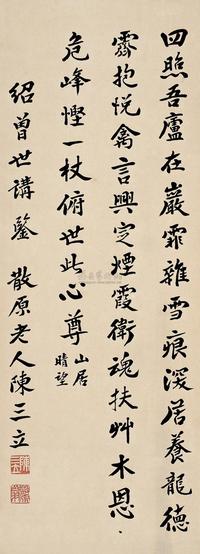 四照吾廬在巖霏雜雪痕深居養龍德
霽抱悅禽言興定煙霞衛魂扶艸木恩
危峰慳一杖俯世此心尊 山居
晴望
紹曾世講鑒 散原老人陳三立